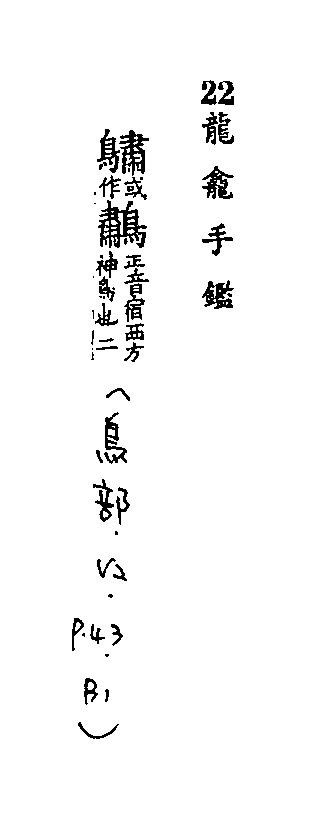 22龍龕手鑑
⿰鳥肅或作鷫正音宿西方神鳥也二(鳥部.V2.P.43.B1)